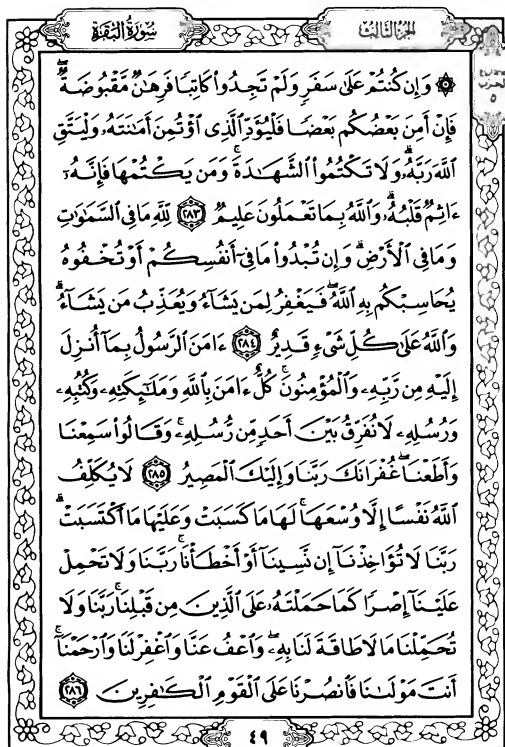 سُورَةُ البَقَرَةِ
الجزء الثالث
۞ وَإِن كُنتُمْ عَلَىٰ سَفَرٍ وَلَمْ تَجِدُوا۟ كَاتِبًا فَرِهَـٰنٌ مَّقْبُوضَةٌ ۖ
فَإِنْ أَمِنَ بَعْضُكُم بَعْضًا فَلْيُؤَدِّ ٱلَّذِى ٱؤْتُمِنَ أَمَـٰنَتَهُۥ وَلْيَتَّقِ
ٱللَّهَ رَبَّهُۥ ۗ وَلَا تَكْتُمُوا۟ ٱلشَّهَـٰدَةَ ۚ وَمَن يَكْتُمْهَا فَإِنَّهُۥٓ
ءَاثِمٌ قَلْبُهُۥ ۗ وَٱللَّهُ بِمَا تَعْمَلُونَ عَلِيمٌ ٢٨٣ لِّلَّهِ مَا فِى ٱلسَّمَـٰوَٰتِ
وَمَا فِى ٱلْأَرْضِ ۗ وَإِن تُبْدُوا۟ مَا فِىٓ أَنفُسِكُمْ أَوْ تُخْفُوهُ
يُحَاسِبْكُم بِهِ ٱللَّهُ ۖ فَيَغْفِرُ لِمَن يَشَآءُ وَيُعَذِّبُ مَن يَشَآءُ ۗ
وَٱللَّهُ عَلَىٰ كُلِّ شَىْءٍ قَدِيرٌ ٢٨٤ ءَامَنَ ٱلرَّسُولُ بِمَآ أُنزِلَ
إِلَيْهِ مِن رَّبِّهِۦ وَٱلْمُؤْمِنُونَ ۚ كُلٌّ ءَامَنَ بِٱللَّهِ وَمَلَـٰٓئِكَتِهِۦ وَكُتُبِهِۦ
وَرُسُلِهِۦ لَا نُفَرِّقُ بَيْنَ أَحَدٍ مِّن رُّسُلِهِۦ ۚ وَقَالُوا۟ سَمِعْنَا
وَأَطَعْنَا ۖ غُفْرَانَكَ رَبَّنَا وَإِلَيْكَ ٱلْمَصِيرُ ٢٨٥ لَا يُكَلِّفُ
ٱللَّهُ نَفْسًا إِلَّا وُسْعَهَا ۚ لَهَا مَا كَسَبَتْ وَعَلَيْهَا مَا ٱكْتَسَبَتْ ۗ
رَبَّنَا لَا تُؤَاخِذْنَآ إِن نَّسِينَآ أَوْ أَخْطَأْنَا ۚ رَبَّنَا وَلَا تَحْمِلْ
عَلَيْنَآ إِصْرًا كَمَا حَمَلْتَهُۥ عَلَى ٱلَّذِينَ مِن قَبْلِنَا ۚ رَبَّنَا وَلَا
تُحَمِّلْنَا مَا لَا طَاقَةَ لَنَا بِهِۦ ۖ وَٱعْفُ عَنَّا وَٱغْفِرْ لَنَا وَٱرْحَمْنَآ ۚ
أَنتَ مَوْلَىٰنَا فَٱنصُرْنَا عَلَى ٱلْقَوْمِ ٱلْكَـٰفِرِينَ ٢٨٦
٤٩
الحزب
٥